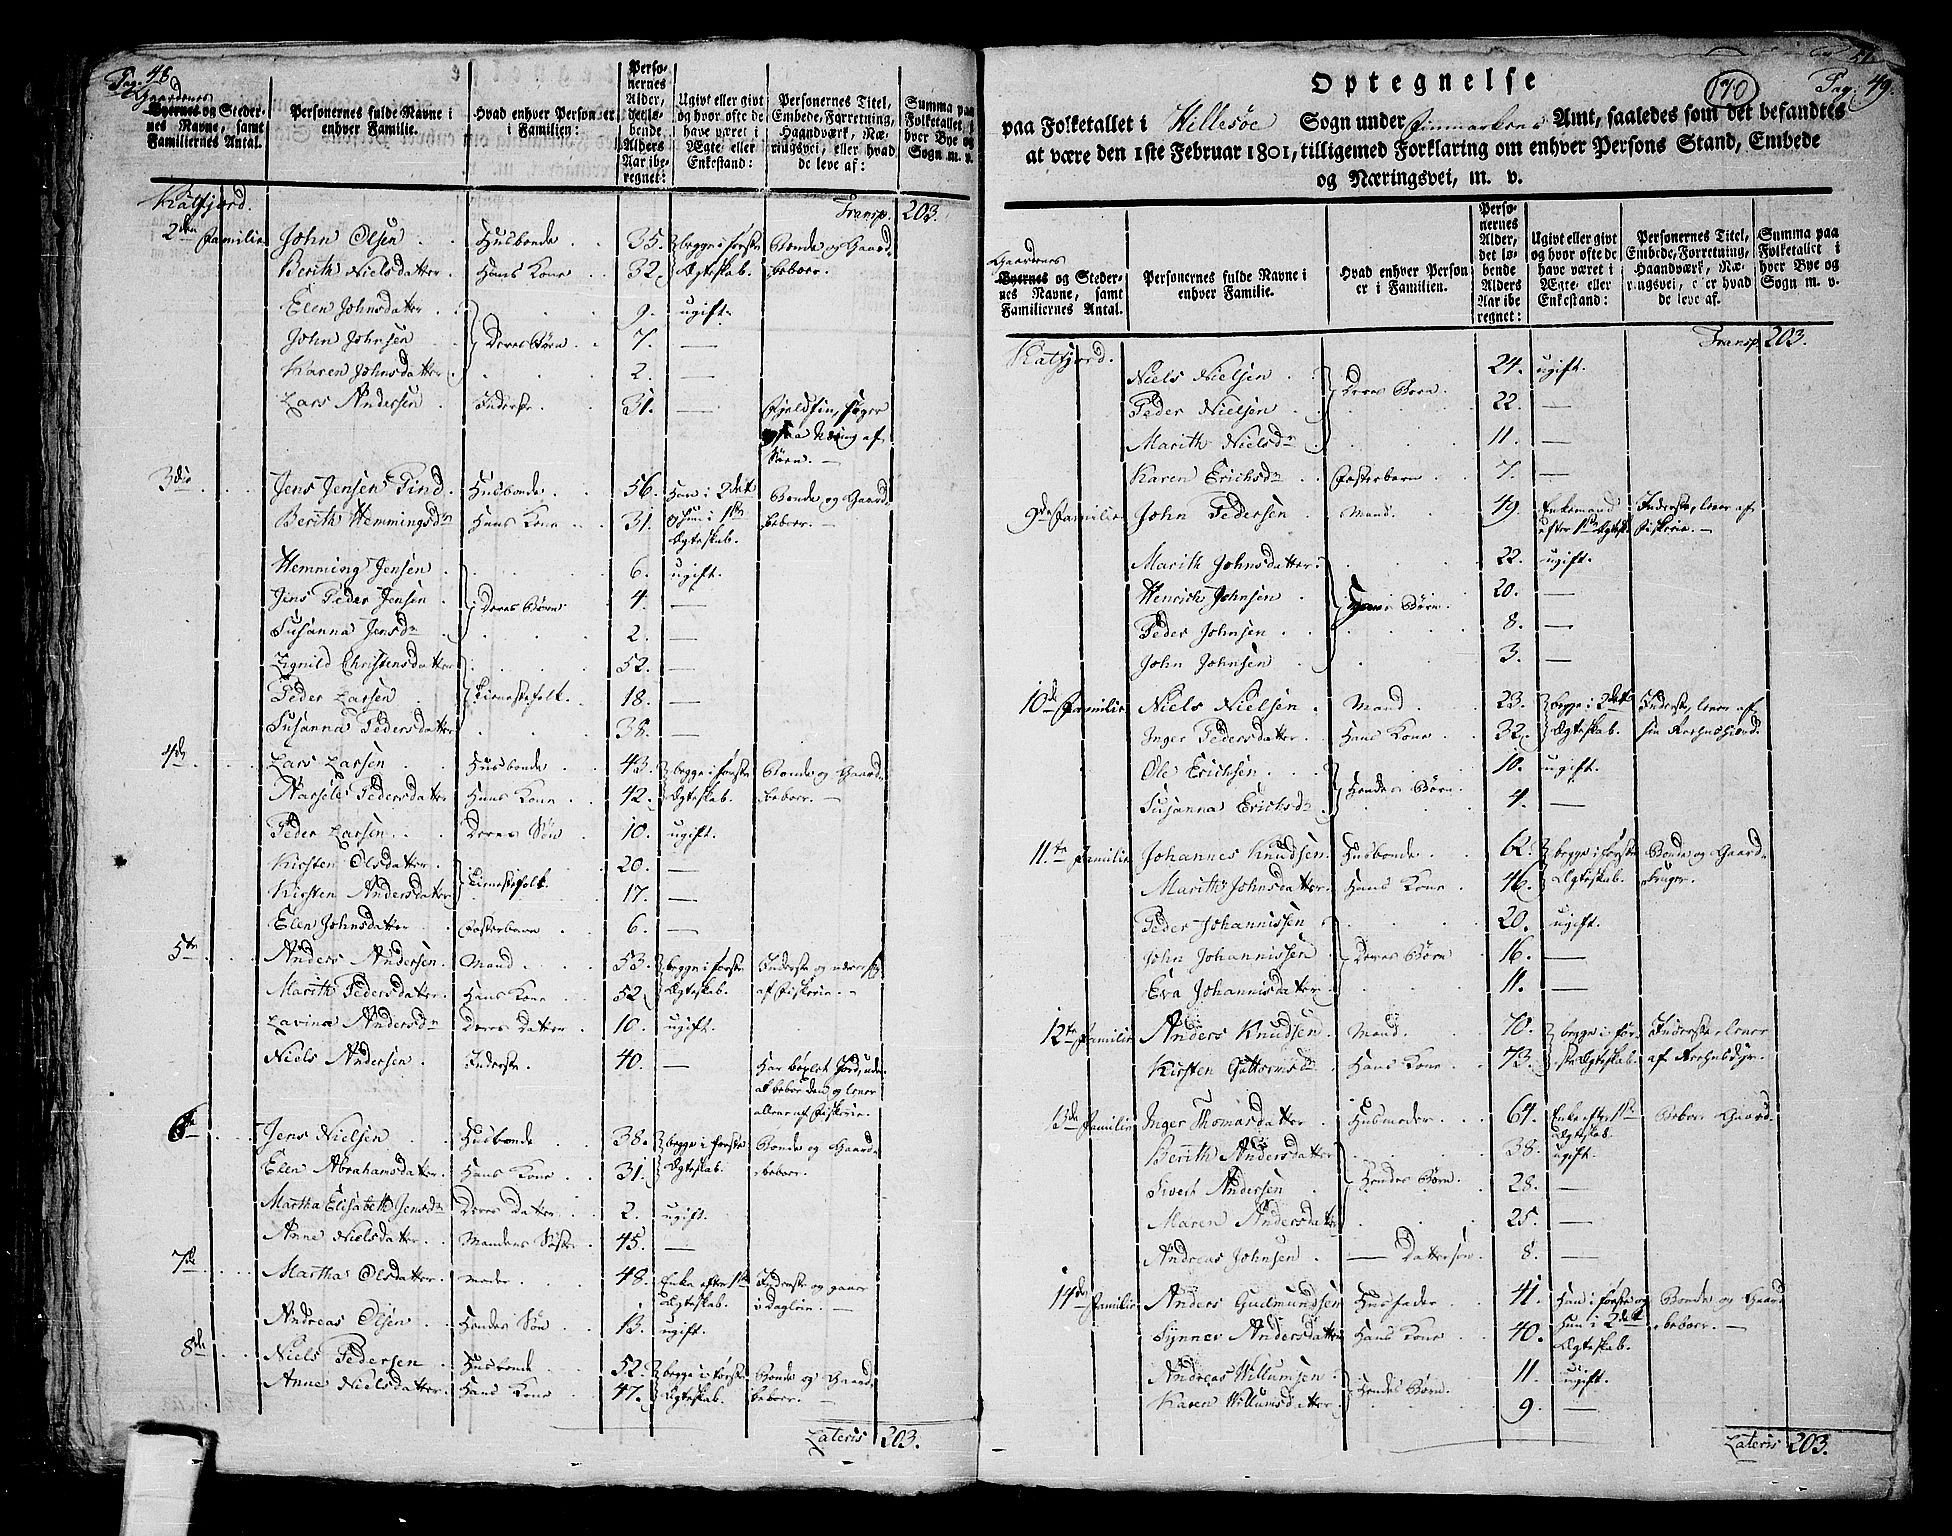 Pag. 48
Gaardenes
Byernes og Stedernes Navne, samt Familiernes Antal.
Personernes fulde Navne i enhver Familie.
Hvad enhver Person er i Familien:
Personernes Alder, det løbende Alders Aar iberegnet:
Ugivt eller givt og hvor ofte de have været i Ægte eller Enkestand:
Personernes Titel, Embede, Forretning, Haandværk, Næringsvei, eller hvad de leve af:
Summa paa Folketallet i hver Bye og Sogn m. v.
Katfjord. Transp. 203.
2den Familie John Olsen Husbonde 35. begge i første Bonde og Gaard-
Berith Nielsdatter Hans Kone 32. Ægteskab. beboer.
Elen Johnsdatter 9. ugift.
John Johnsen Deres Børn 7. —
Karen Johnsdatter 2. —
Lars Andersen Inderste 31. — Fjeldfin, søger
og saa Næring af
Søen. —
3die Jens Jensen Find Husbonde 56. Han i 2det Bonde og Gaard-
Berith Hemmingsdr Hans Kone 31. og hun i 1ste beboer. —
Ægteskab.
Hemming Jensen 6. ugift.
Jens Peder Jensen Deres Børn 4. —
Susanna Jensdr 2. —
Zignild Christensdatter 52. —
Peder Larsen Tienestefolk 18. —
Susanna Pedersdatter 38. —
4de Lars Larsen Husbonde 43. begge i første Bonde og Gaard-
Marsele Pedersdatter Hans Kone 42. Ægteskab. beboer. —
Peder Larsen Deres Søn 10. ugift.
Kirsten Olsdatter 20. —
Kirsten Andersdatter Tienestefolk 17. —
Elen Johnsdatter Fosterbarn 6. —
5te Anders Andersen Mand 53. begge i første Inderste og nærer sig
Marith Pedersdatter Hans Kone 52. Ægteskab. af Fiskerie. —
Lavina Andersdr Deres Datter 10. ugift.
Niels Andersen Inderste 40. — Har bøxlet Jord, uden
at beboe den, og lever
allene af Fiskerie.
6te Jens Nielsen Husbonde 38. begge i første Bonde og Gaard-
Elen Abrahamsdatter Hans Kone 31. Ægteskab. beboer.
Martha Elisabeth Jensdr Deres Datter 2. ugift.
Anne Nielsdatter Mandens Søster 45. —
7de Martha Olsdatter Moder 48. Enke efter 1ste Inderste og gaaer
Ægteskab. i Dagleie. —
Andreas Olsen Hendes Søn 13. ugift.
8de Niels Pedersen Husbonde 52. begge i første Bonde og Gaard-
Anne Nielsdatter Hans Kone 47. Ægteskab. beboer.
Lateris 203.
170
Pag. 49.
Optegnelse
paa Folketallet i Hillesøe Sogn under Finmarkens Amt, saaledes som det befandtes
at være den 1ste Februar 1801, tilligemed Forklaring om enhver Persons Stand, Embede
og Næringsvei, m. v.
Gaardenes
Byernes og Stedernes Navne, samt Familiernes Antal.
Personernes fulde Navne i enhver Familie.
Hvad enhver Person er i Familien.
Personernes Alder, det løbende Alders Aar iberegnet:
Ugivt eller givt og hvor ofte de have været i Ægte eller Enkestand:
Personernes Titel, Embede, Forretning, Haandværk, Næringsvei, eller hvad de leve af.
Summa paa Folketallet i hver Bye og Sogn m. v.
Transp. 203.
Katfjord. Niels Nielsen 24. ugift.
Peder Nielsen Deres Børn 22. —
Marith Nielsdr 11. —
Karen Erichsdr Fosterbarn 7. —
9de Familie John Pedersen Mand 49. Enkemand Inderste, lever af
efter 1ste Ægtesk. Fiskerie. —
Marith Johnsdatter 22. ugift.
Henrich Johnsen Hans Børn 20. —
Peder Johnsen 8. —
John Johnsen 3. —
10de Familie Niels Nielsen Mand 23. begge i 2det Inderste, lever af
Inger Pedersdatter Hans Kone 32. Ægteskab. sin Reehnshiord.
Ole Erichsen 10. ugift.
Susanna Erichsdr Hendes Børn 4. —
11te Familie Johannes Knudsen Husbonde 62. begge i første Bonde og Gaard-
Marith Johnsdatter Hans Kone 46. Ægteskab. bruger.
Peder Johannissen 20. ugift.
John Johannissen Deres Børn 16. —
Eva Johannisdatter 11. —
12te Familie Anders Knudsen Mand 70. begge i før- Inderste, lever
Kirsten Guttormsdr Hans Kone 73. ste Ægteskab. af Reehnsdyr.
13de Familie Inger Thomasdatter Husmoder 64. Enke efter 1ste Beboer Gaard.
Ægteskab.
Berith Andersdatter 38. ugift.
Sivert Andersen Hendes Børn 28. —
Maren Andersdatter 25. —
Andreas Johnsen — Dattersøn 8. —
14de Familie Anders Gudmundsen Husfader 41. Han i første og Bonde og Gaard-
Synner Andersdatter Hans Kone 40. Hun i 2det beboer. —
Ægteskab.
Andreas Willumsen 11. ugift.
Karen Willumsdatter Hendes Børn 9. —
Lateris 203.